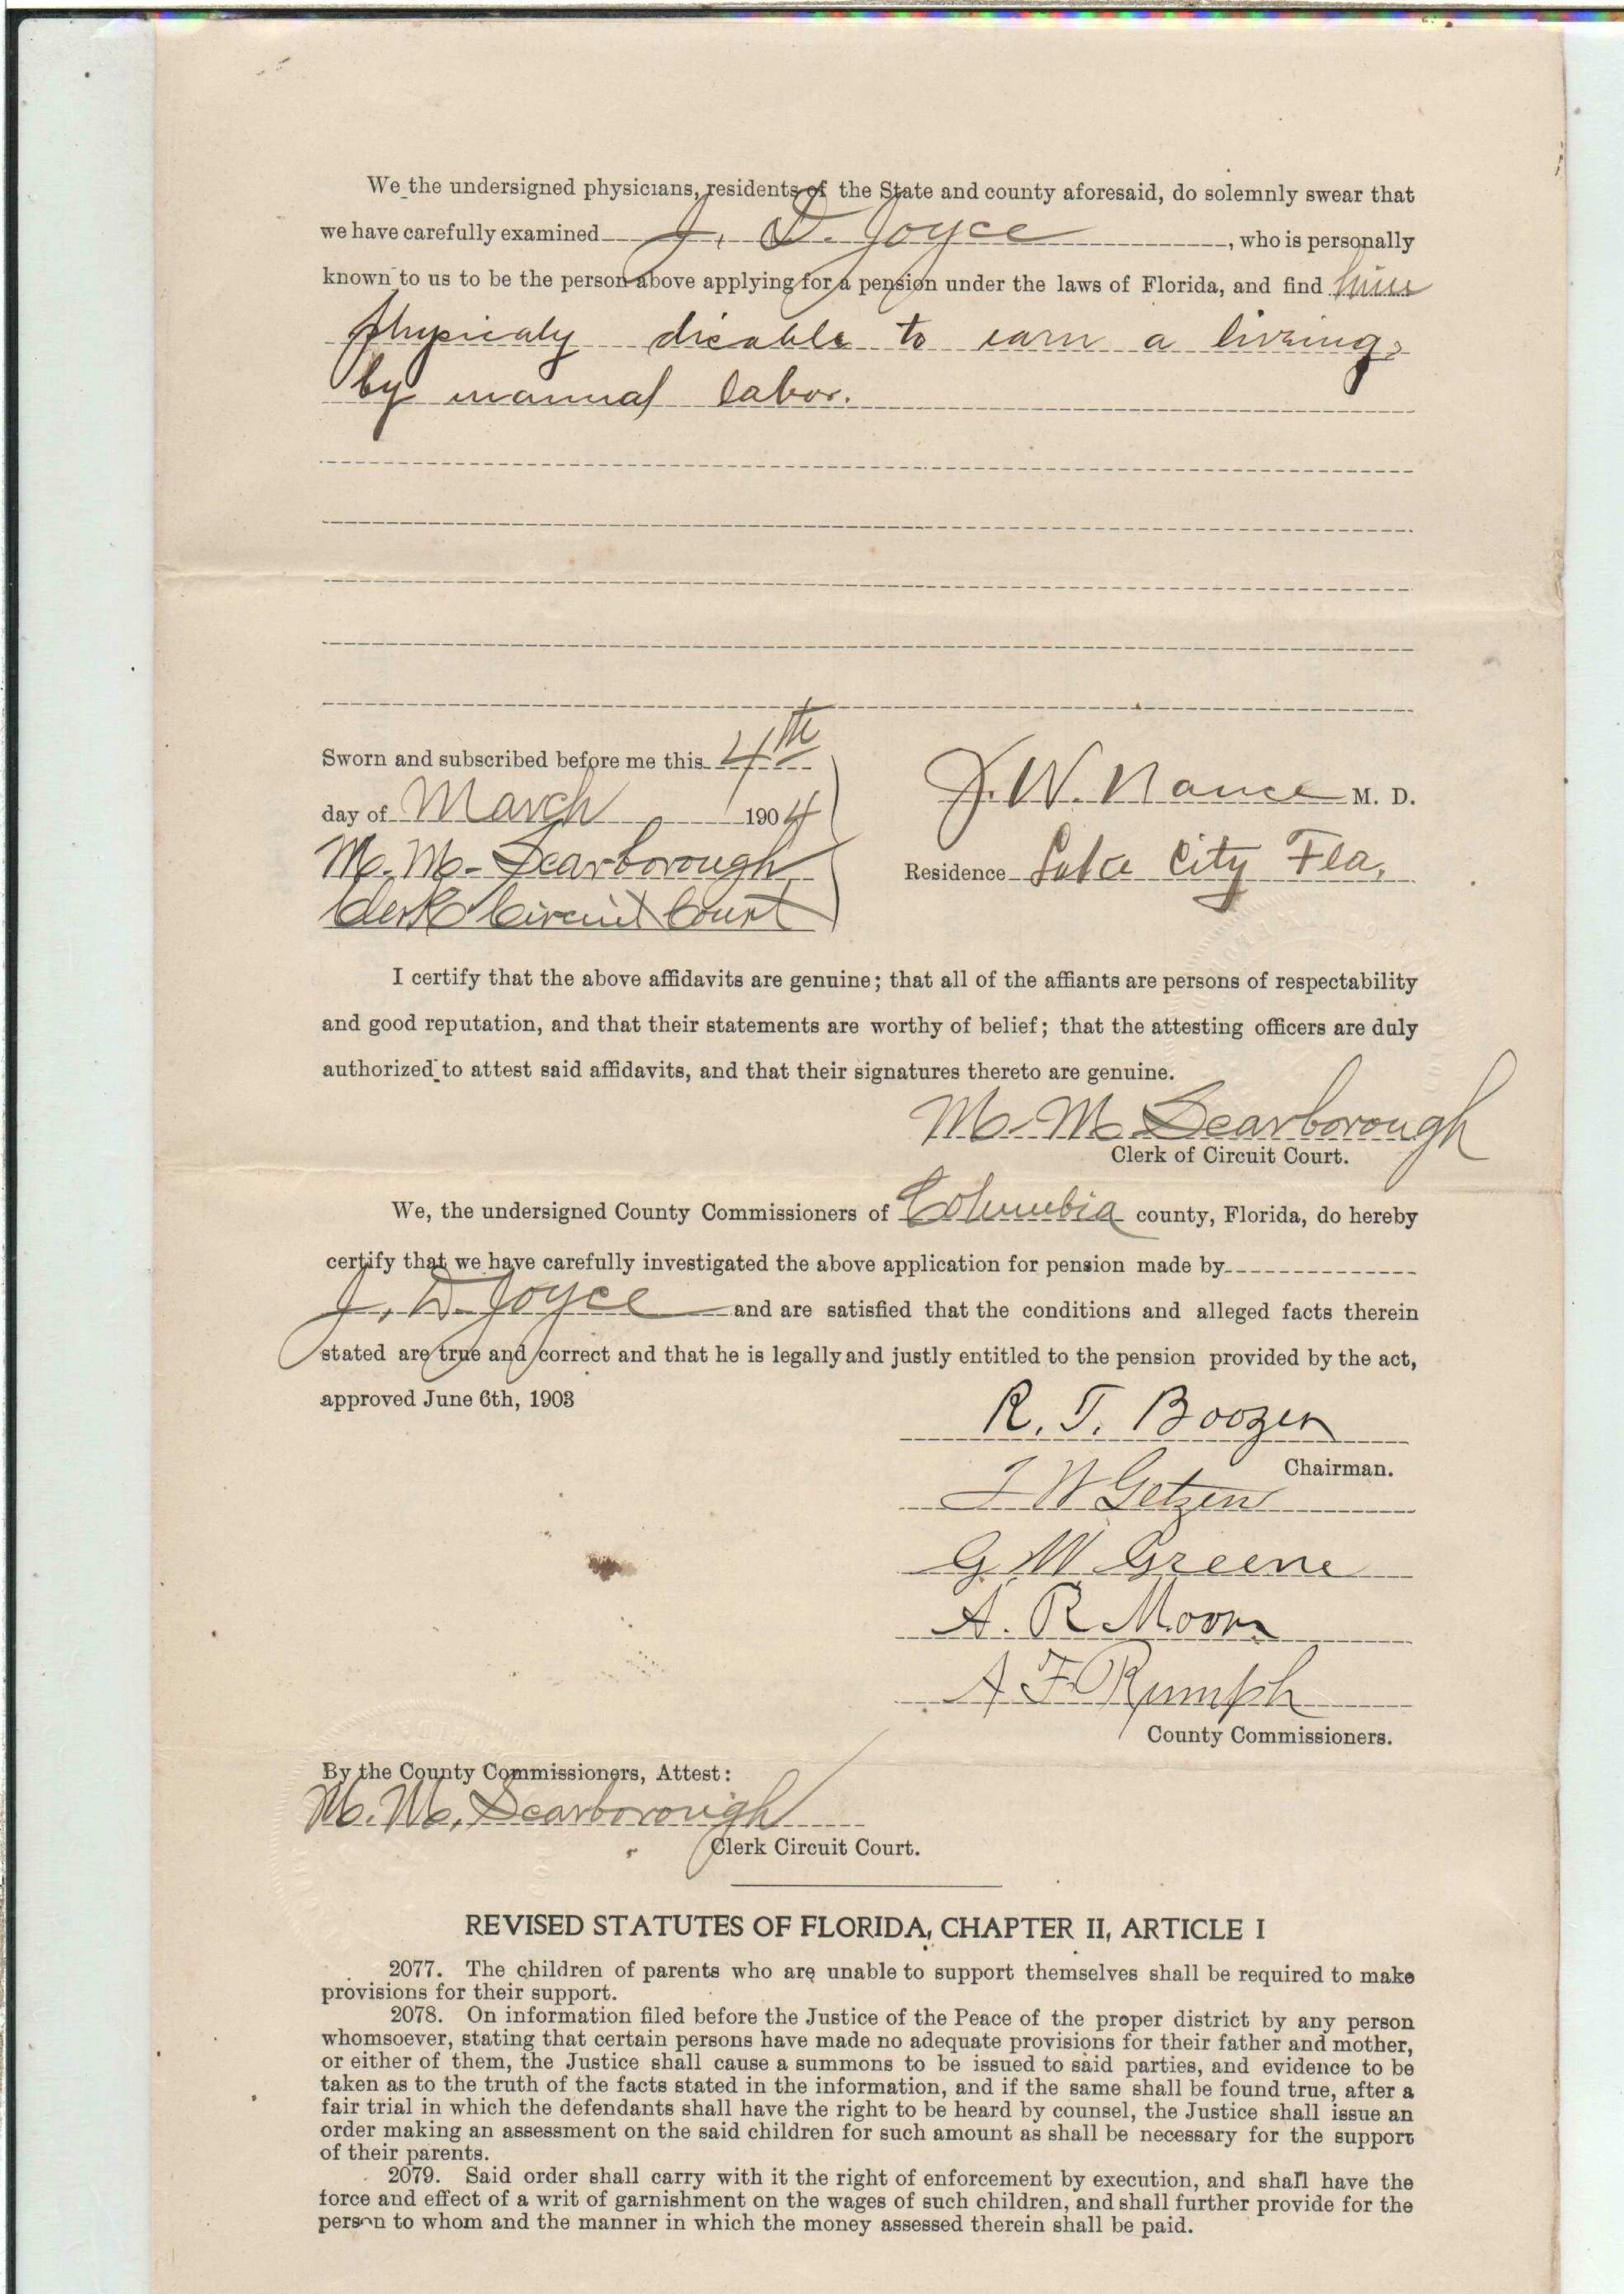 We the undersigned physicians, residents of the State and county aforesaid, do solemnly swear that
we have carefully examined J. D. Joyce, who is personally
known to us to be the person above applying for a pension under the laws of Florida, and find him
physicaly disable to earn a living
by manual labor.
Sworn and subscribed before me this 4th
day of March 1904
M. M. Scarborough
Clerk Circuit Court
J. W. Nance M. D.
Residence Lake City Fla.
I certify that the above affidavits are genuine; that all of the affiants are persons of respectability
and good reputation, and that their statements are worthy of belief; that the attesting officers are duly
authorized to attest said affidavits, and that their signatures thereto are genuine.
M. M. Scarborough
Clerk of Circuit Court.
We, the undersigned County Commissioners of Columbia county, Florida, do hereby
certify that we have carefully investigated the above application for pension made by
J. D. Joyce and are satisfied that the conditions and alleged facts therein
stated are true and correct and that he is legally and justly entitled to the pension provided by the act,
approved June 6th, 1903
R. T. Boozer
Chairman.
J W Getzen
G W Greene
A. R. Moore
A F Rumph
County Commissioners.
By the County Commissioners, Attest:
M. M. Scarborough
Clerk Circuit Court.
REVISED STATUTES OF FLORIDA, CHAPTER II, ARTICLE I
2077. The children of parents who are unable to support themselves shall be required to make
provisions for their support.
2078. On information filed before the Justice of the Peace of the proper district by any person
whomsoever, stating that certain persons have made no adequate provisions for their father and mother,
or either of them, the Justice shall cause a summons to be issued to said parties, and evidence to be
taken as to the truth of the facts stated in the information, and if the same shall be found true, after a
fair trial in which the defendants shall have the right to be heard by counsel, the Justice shall issue an
order making an assessment on the said children for such amount as shall be necessary for the support
of their parents.
2079. Said order shall carry with it the right of enforcement by execution, and shall have the
force and effect of a writ of garnishment on the wages of such children, and shall further provide for the
person to whom and the manner in which the money assessed therein shall be paid.